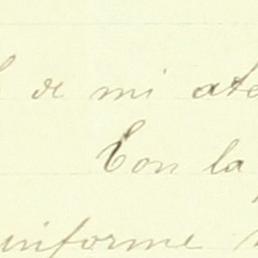 de mi ate
Con la
uniforme